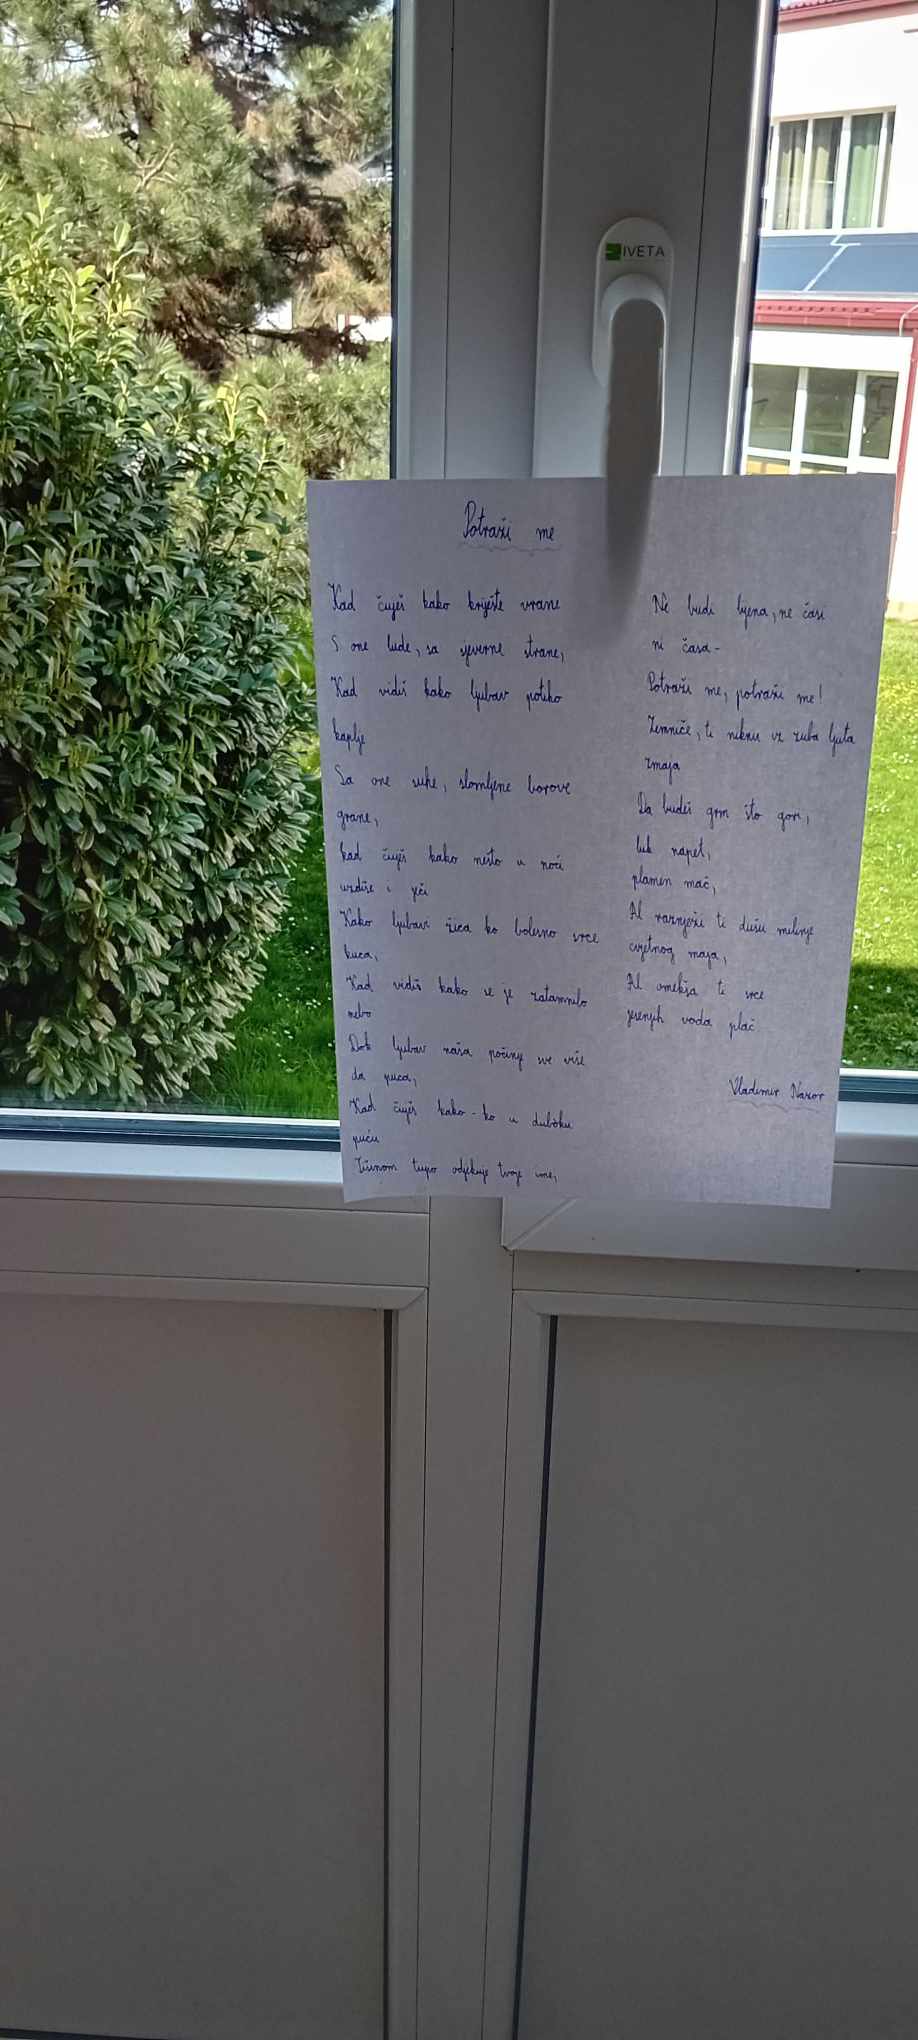 IVETA
Potraži me
Kad čuješ kako kriješte vrane
S one lude, sa sjeverne strane,
Kad vidiš kako ljubav potiho
kaplje
Sa one suhe, slomljene borove
grane,
Kad čuješ kako nešto u noći
uzdiše i ječi
Kako ljubavi žica ko bolesno srce
kuca,
Kad vidiš kako se je zatamnilo
nebo
Dok ljubav naša počinje sve više
da puca,
Kad čuješ kako - ko u duboku
puću
tupo odjekuje tvoje ime,
Ne budi lijena, ne časi
ni časa -
Potraži me, potraži me!
ti niknu iz zuba ljuta
zmaja
Da budeš grm što gori,
luk napet,
plamen mač,
Al raznježi ti dušu milinje
cvjetnog maja,
Al omekša ti srce
jesenjih voda plač
Vladimir Nazor